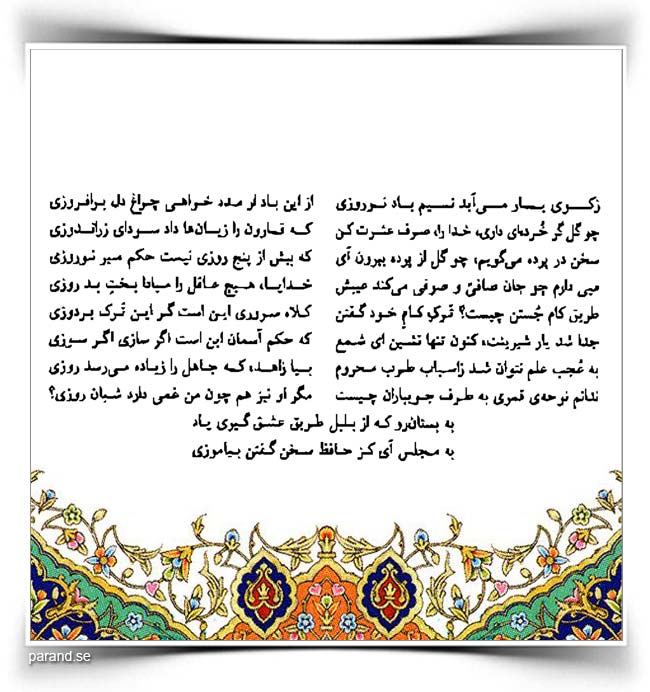 زکوی یار می‌آید نسیم باد نوروزی از این باد ار مدد خواهی چراغ دل برافروزی
چو گل گر خُرده‌ای داری، خدا را، صرف عشرت کن که قارون را زیان‌ها داد سودای زراندوزی
سخن در پرده می‌گویم، چو گل از پرده بیرون آی که بیش از پنج روزی نیست حکم میر نوروزی
میی دارم چو جان صافیّ و صوفی می‌کند عیبش خدایا، هیچ عاقل را مبادا بختِ بد روزی
طریق کام جُستن چیست؟ تَرکِ کامِ خود گفتن کلاه سروری این است گر این تَرک بردوزی
جدا شد یار شیرینت، کنون تنها نشین ای شمع که حکم آسمان این است اگر سازی اگر سوزی
به عُجب علم نتوان شد زاسباب طرب محروم بیا زاهد، که جاهل را زیاده می‌رسد روزی
ندانم نوحه‌ی قمری به طرف جویباران چیست مگر او نیز هم چون من غمی دارد شبان روزی؟
به بستان‌رو که از بلبل طریق عشق گیری یاد
به مجلس آی کز حافظ سخن گفتن بیاموزی
parand.se